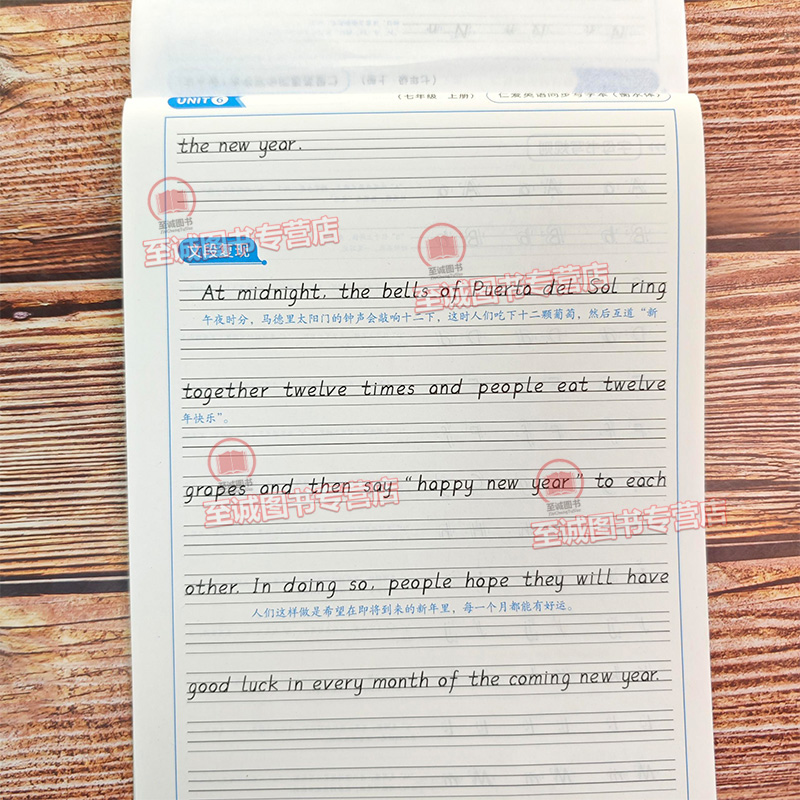 UNIT 6
（七年级 上册） 仁爱英语同步写字本（衡水体）
the new year.
文段复现
At midnight, the bells of Puerta del Sol ring
午夜时分，马德里太阳门的钟声会敲响十二下，这时人们吃下十二颗葡萄，然后互道“新
together twelve times and people eat twelve
年快乐”。
grapes and then say “happy new year” to each
other. In doing so, people hope they will have
人们这样做是希望在即将到来的新年里，每一个月都能有好运。
good luck in every month of the coming new year.
至诚图书
至诚图书专营店
至诚图书
至诚图书专营店
至诚图书
至诚图书专营店
至诚图书
至诚图书专营店